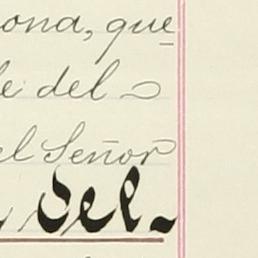 ona, que
le del
el Señor
del-